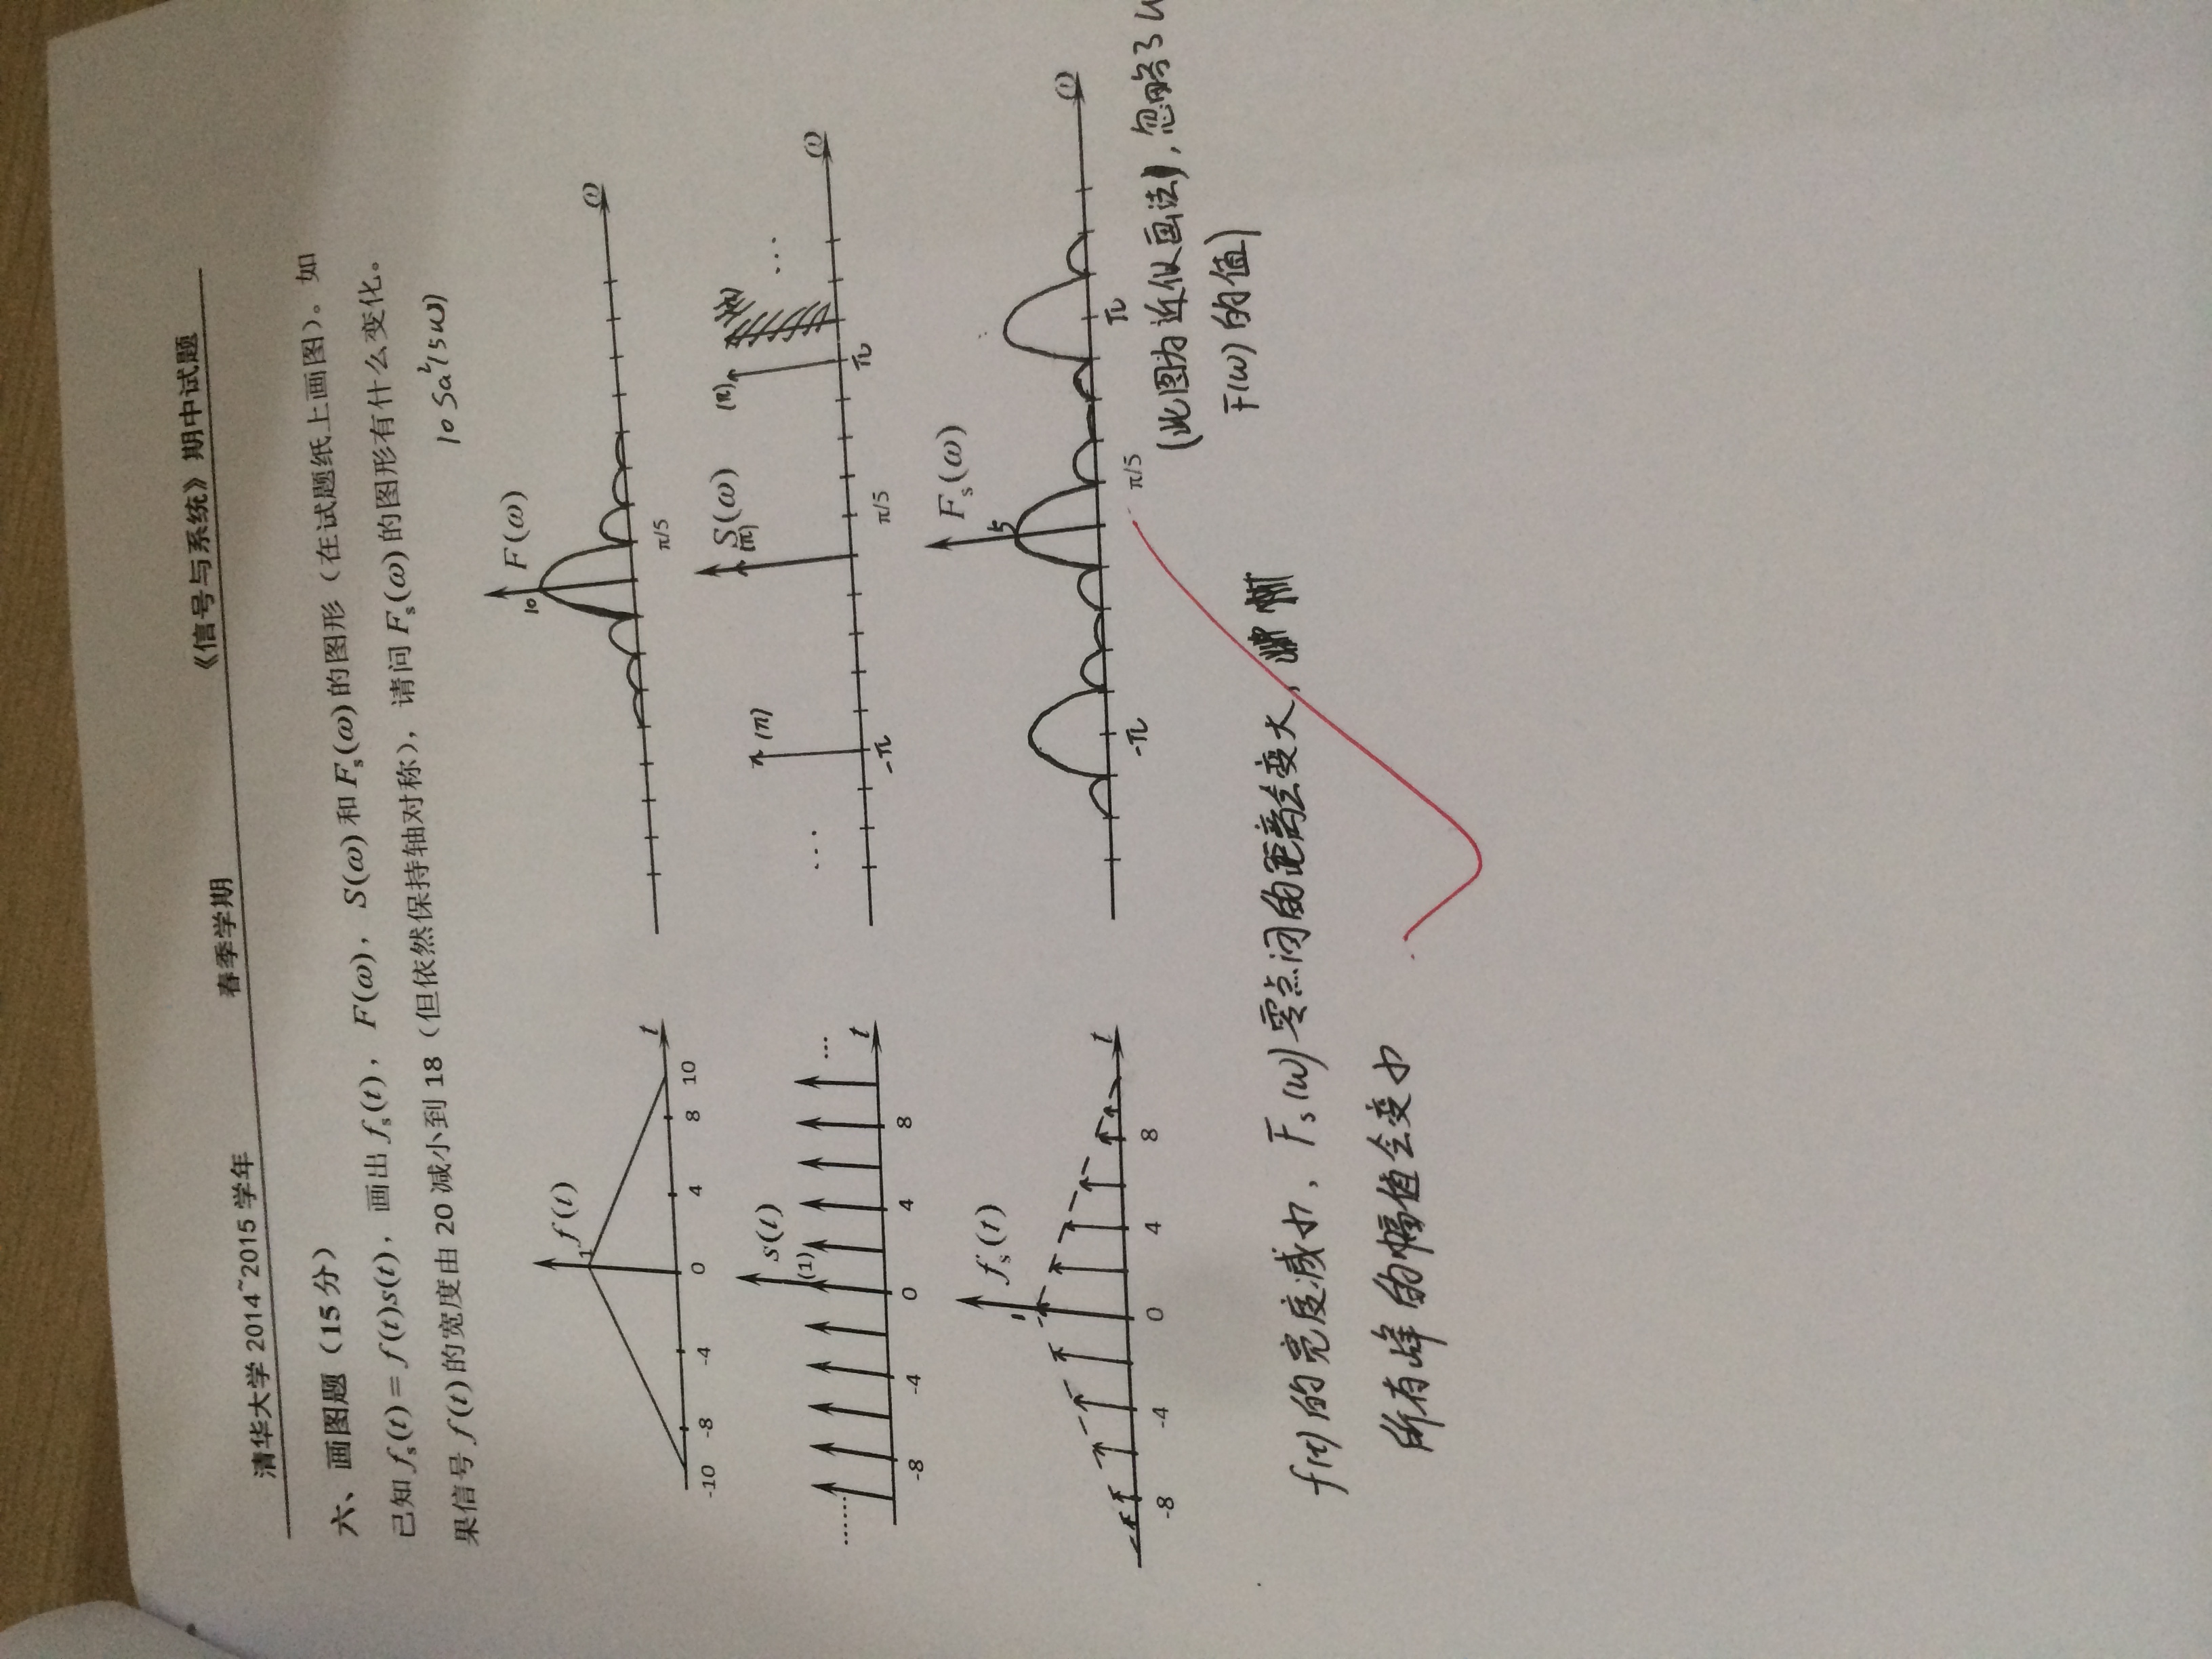 清华大学 2014~2015 学年 春季学期 《信号与系统》期中试题
六、画图题（15 分）
已知 fₛ(t) = f(t)s(t)，画出 fₛ(t)，F(ω)，S(ω) 和 Fₛ(ω) 的图形（在试题纸上画图）。如
果信号 f(t) 的宽度由 20 减小到 18（但依然保持轴对称），请问 Fₛ(ω) 的图形有什么变化。
10 Sa²(5ω)
f(t)
1
t
-10 -8 -4 0 4 8 10
F(ω)
10
ω
π/5
s(t)
(1)
...... ...
t
-8 -4 0 4 8
S(ω)
(π) (π) (π)
... ...
ω
-π π/5 π
fₛ(t)
1
t
-8 -4 0 4 8
Fₛ(ω)
5
ω
-π π/5 π
(此图为近似画法), 忽略了
F(ω) 的值)
f(t) 的宽度减小, Fₛ(ω) 零点间的距离会变大,
所有峰的幅值会变小